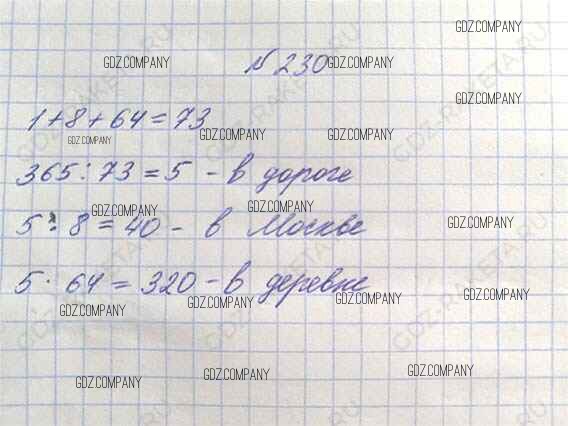 GDZ.COMPANY
№ 230
GDZ.COMPANY GDZ.COMPANY
GDZ.COMPANY
1+8+64=73
GDZ.COMPANY GDZ.COMPANY GDZ.COMPANY
365:73=5 - в дороге
GDZ.COMPANY GDZ.COMPANY
5:8=40 - в Москве
GDZ.COMPANY
5·64=320 - в деревне
GDZ.COMPANY GDZ.COMPANY GDZ.COMPANY GDZ.COMPANY
GDZ.COMPANY GDZ.COMPANY GDZ.COMPANY